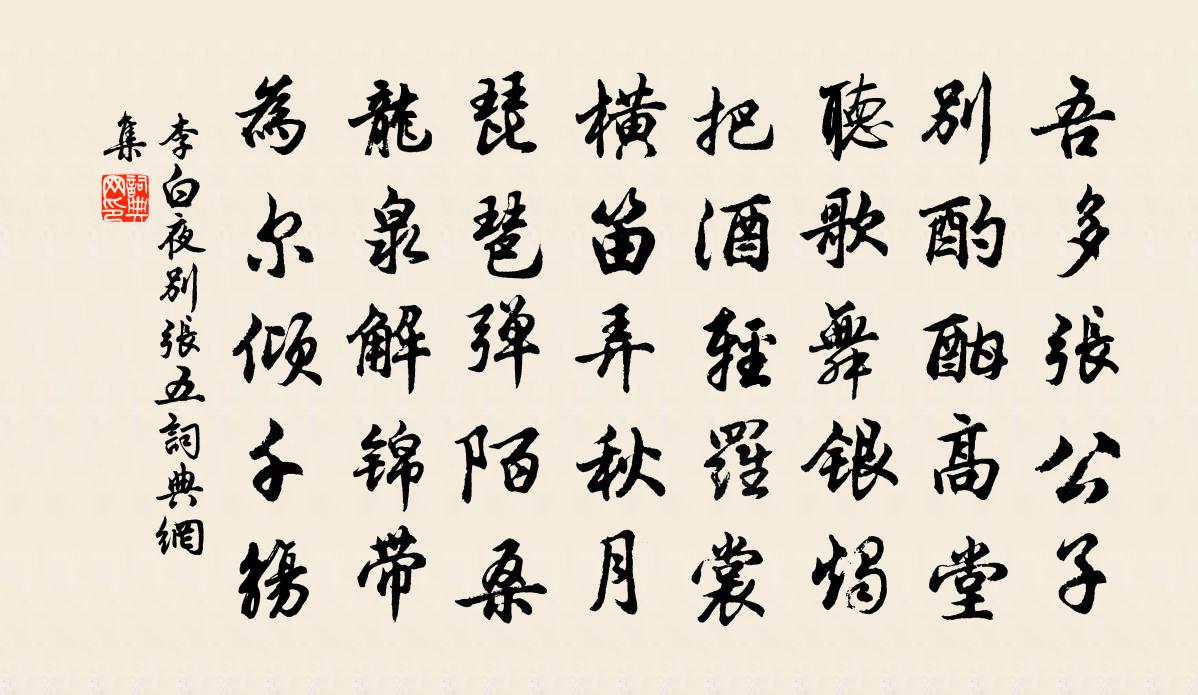 吾多張公子
別酌酣高堂
聽歌舞銀燭
把酒輕羅裳
橫笛弄秋月
琵琶彈陌桑
龍泉解錦帶
為尔傾千觴
李白夜別張五詞典網
集
詞典網印